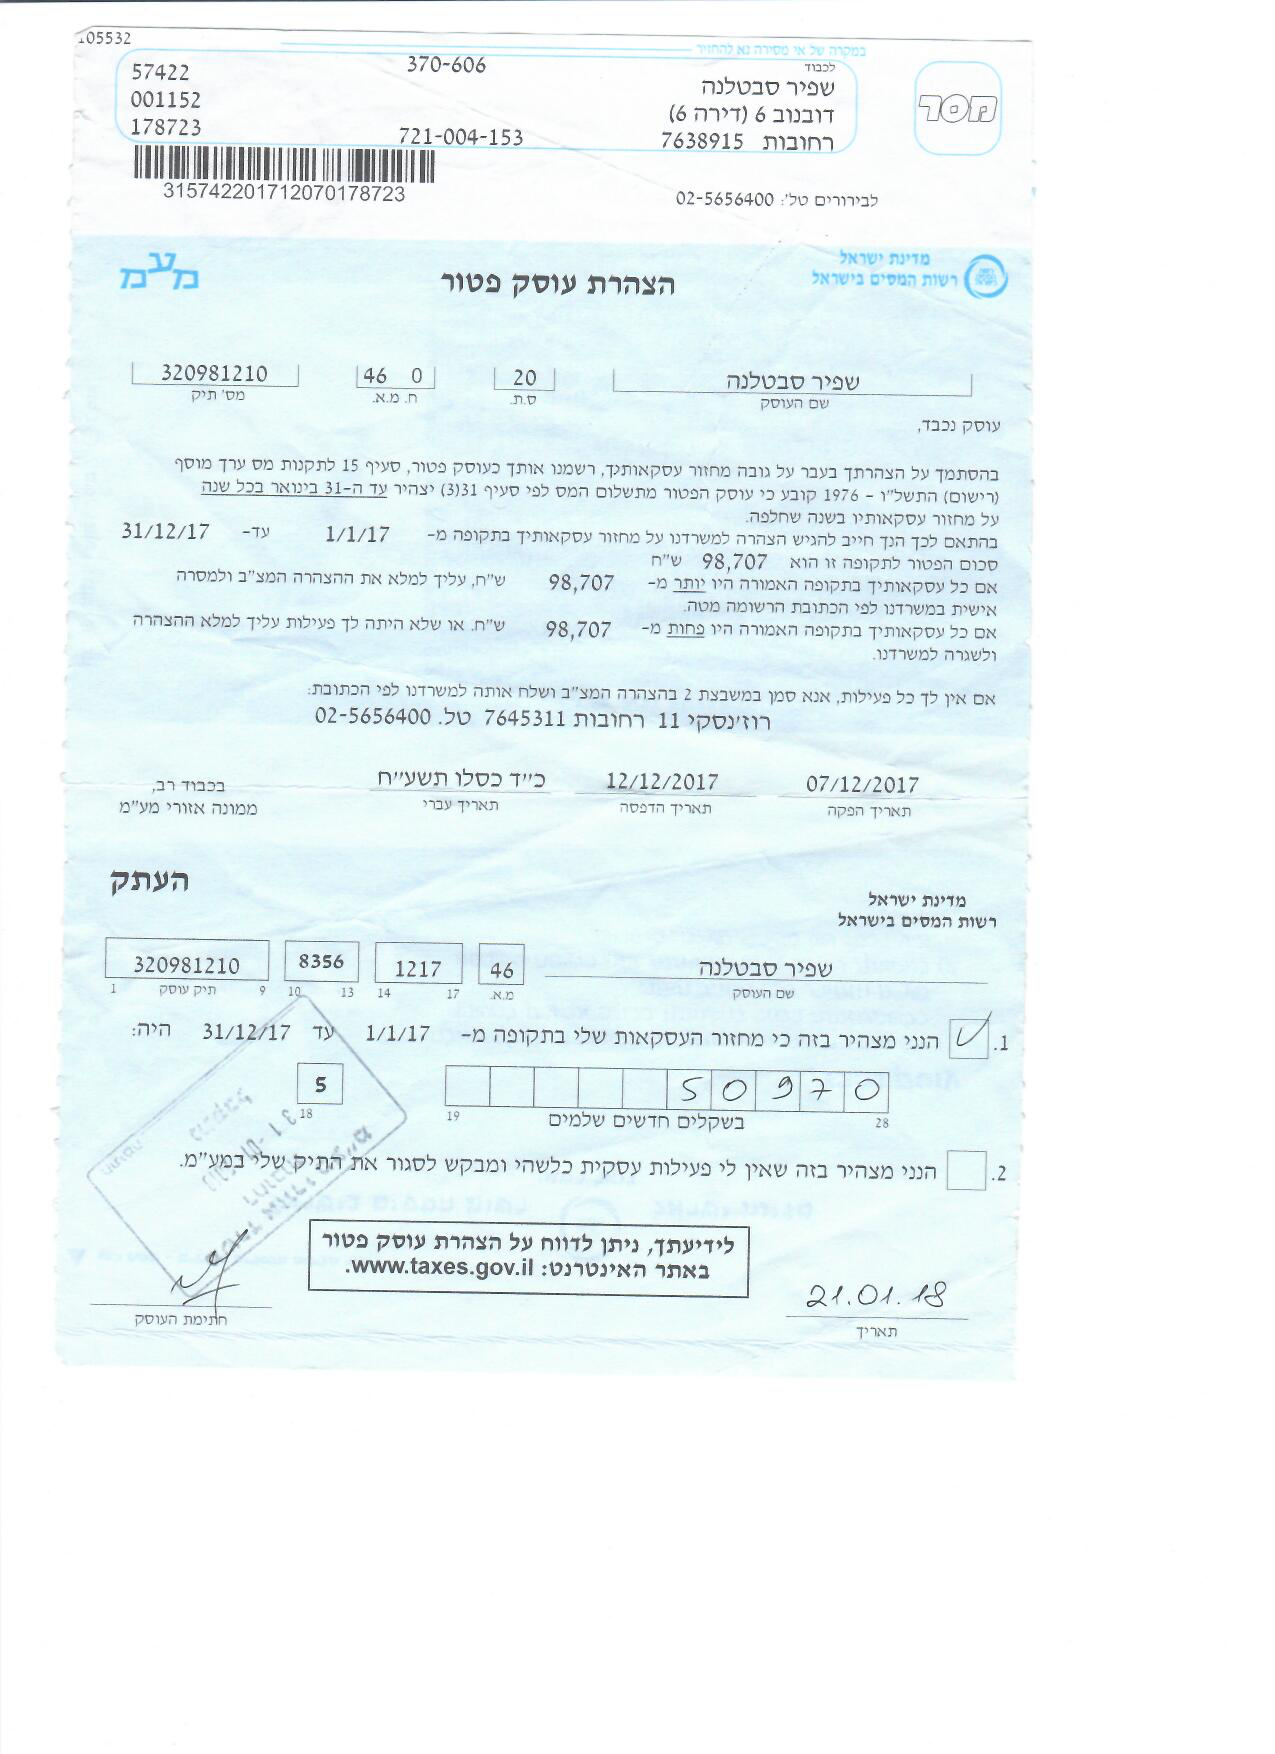 105532
במקרה של אי מסירה נא להחזיר
לכבוד
57422 370-606 שפיר סבטלנה
001152 דובנוב 6 (דירה 6)
178723 721-004-153 רחובות 7638915
מסר
315742201712070178723
לבירורים טל': 02-5656400
מדינת ישראל
רשות המסים בישראל
מע"מ
הצהרת עוסק פטור
שפיר סבטלנה 20 46 0 320981210
שם העוסק ס.ת. ח. מ.א. מס' תיק
עוסק נכבד,
בהסתמך על הצהרתך בעבר על גובה מחזור עסקאותיך, רשמנו אותך כעוסק פטור, סעיף 15 לתקנות מס ערך מוסף
(רישום) התשל"ו – 1976 קובע כי עוסק הפטור מתשלום המס לפי סעיף 31(3) יצהיר עד ה-31 בינואר בכל שנה
על מחזור עסקאותיו בשנה שחלפה.
בהתאם לכך הנך חייב להגיש הצהרה למשרדנו על מחזור עסקאותיך בתקופה מ- 1/1/17 עד- 31/12/17
סכום הפטור לתקופה זו הוא 98,707 ש"ח
אם כל עסקאותיך בתקופה האמורה היו יותר מ- 98,707 ש"ח, עליך למלא את ההצהרה המצ"ב ולמסרה
אישית במשרדנו לפי הכתובת הרשומה מטה.
אם כל עסקאותיך בתקופה האמורה היו פחות מ- 98,707 ש"ח. או שלא היתה לך פעילות עליך למלא ההצהרה
ולשגרה למשרדנו.
אם אין לך כל פעילות, אנא סמן במשבצת 2 בהצהרה המצ"ב ושלח אותה למשרדנו לפי הכתובת:
רוז'נסקי 11 רחובות 7645311 טל. 02-5656400
07/12/2017 12/12/2017 כ"ד כסלו תשע"ח בכבוד רב,
תאריך הפקה תאריך הדפסה תאריך עברי ממונה אזורי מע"מ
העתק
מדינת ישראל
רשות המסים בישראל
שפיר סבטלנה 46 1217 8356 320981210
שם העוסק מ.א. 17 14 13 10 9 תיק עוסק 1
1. הנני מצהיר בזה כי מחזור העסקאות שלי בתקופה מ- 1/1/17 עד 31/12/17 היה:
50970 5
28 בשקלים חדשים שלמים 19 18
2. הנני מצהיר בזה שאין לי פעילות עסקית כלשהי ומבקש לסגור את התיק שלי במע"מ.
לידיעתך, ניתן לדווח על הצהרת עוסק פטור
באתר האינטרנט: www.taxes.gov.il.
21.01.18
תאריך
חתימת העוסק